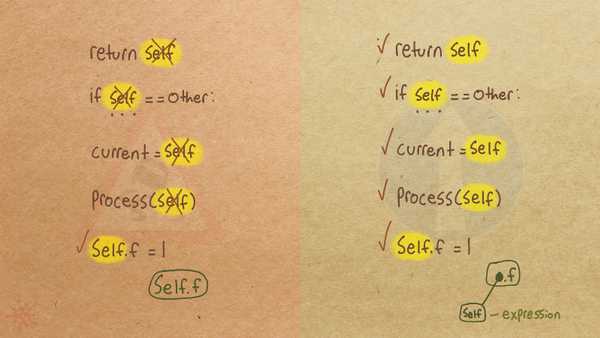 return self
if self == other:
...
current = self
process(self)
self.f = 1
self.f
return self
if self == other:
...
current = self
process(self)
self.f = 1
.f
self - expression